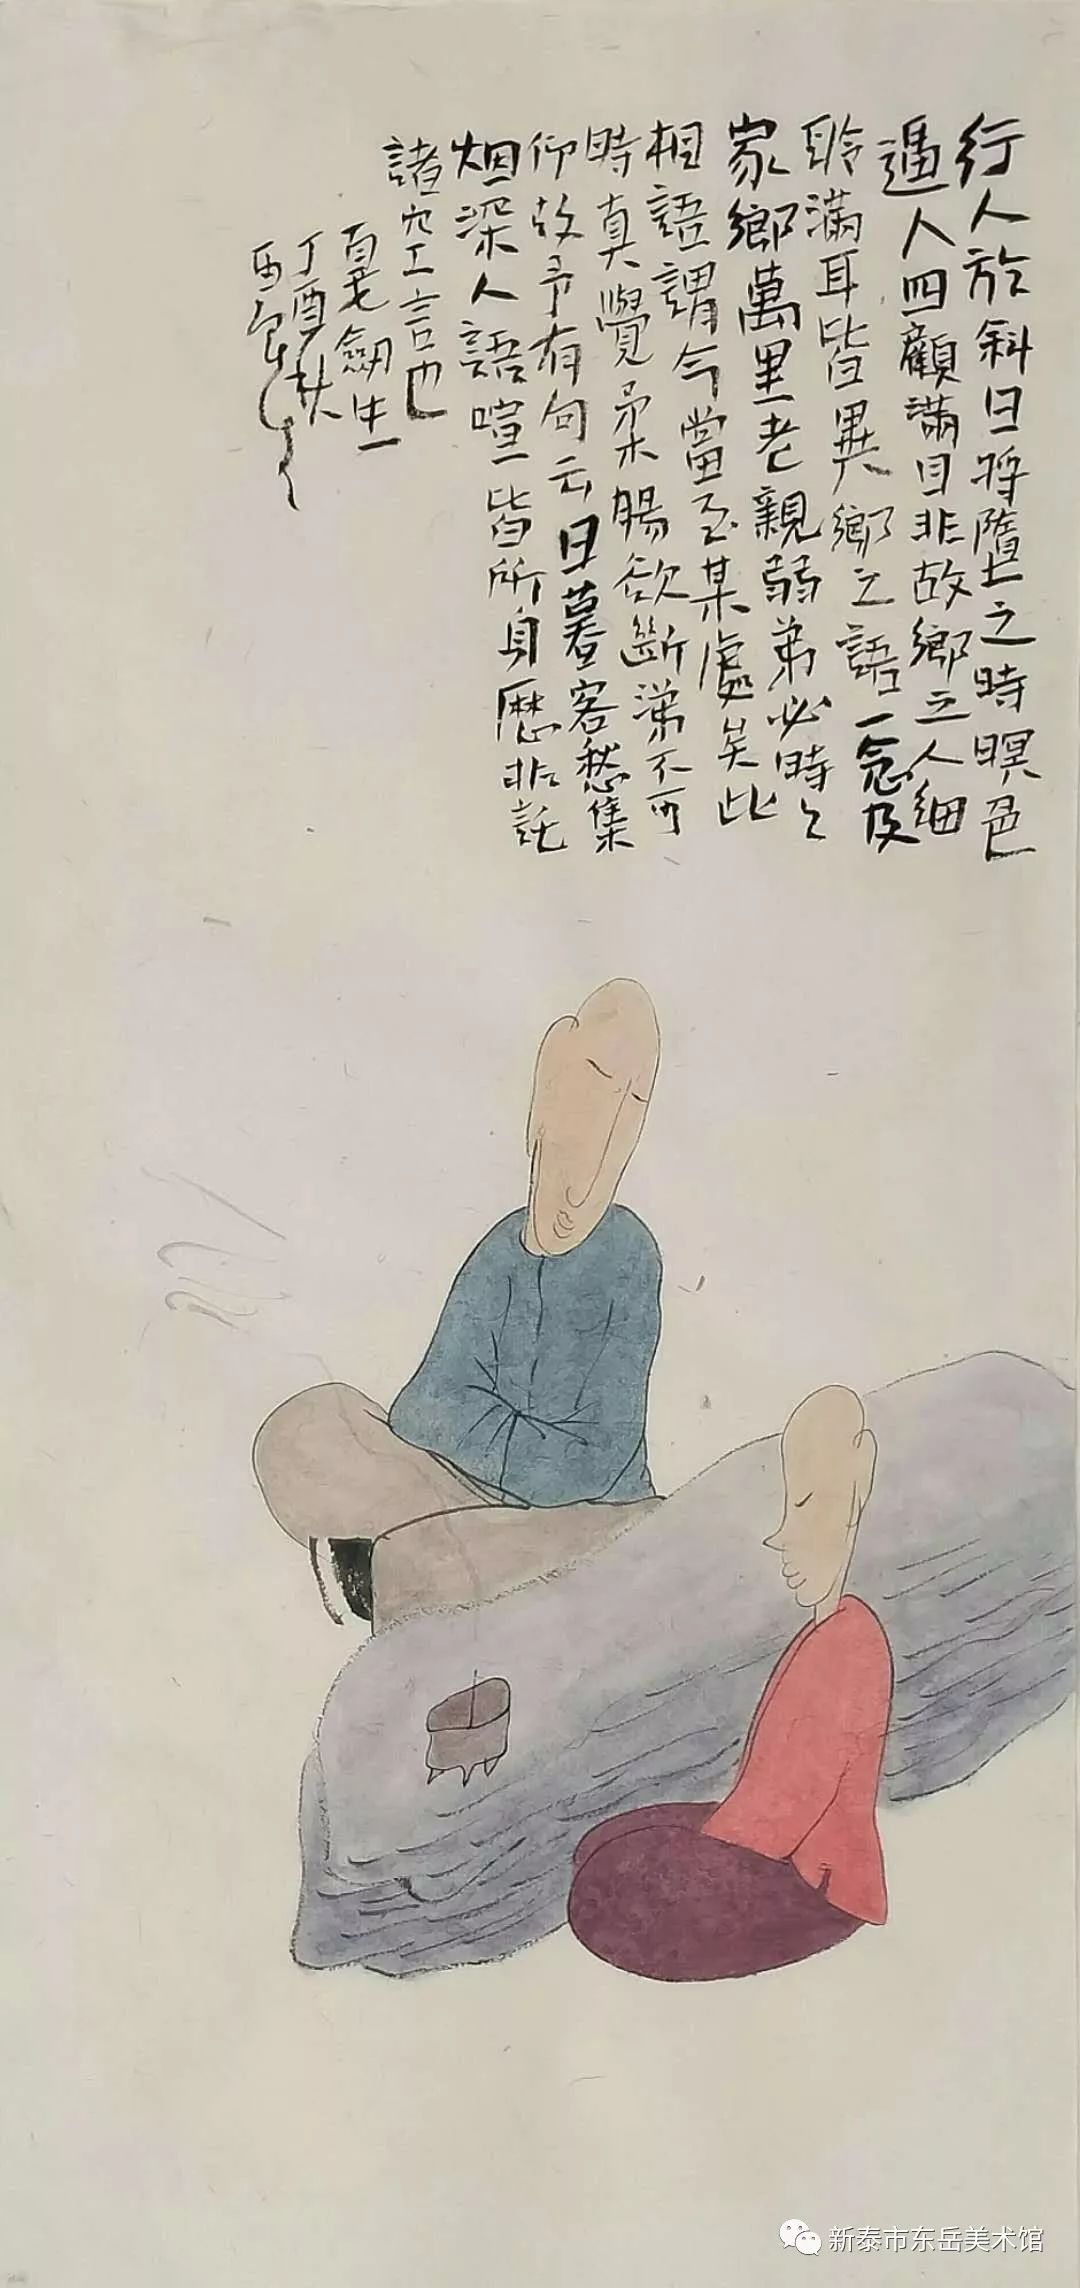 行人於斜日將墮之時暝色
逼人四顧滿目非故鄉之人細
聆滿耳皆異鄉之語一念及
家鄉萬里老親弱弟必時々
相語謂今當至某處矣此
時真覺柔腸欲斷涕不可
仰故予有句云日暮客愁集
烟深人語喧皆所身歷非託
諸空言也
丁酉秋
新泰市东岳美术馆